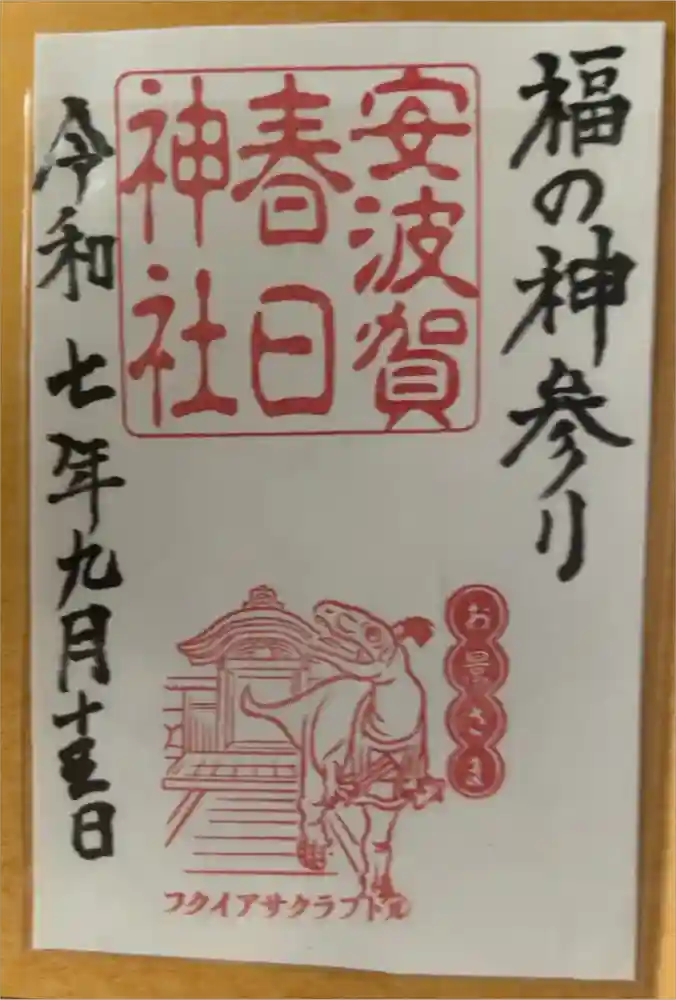 福の神参り
安波賀
春日
神社
令和七年九月十五日
お景さま
フクイアサクラプトル